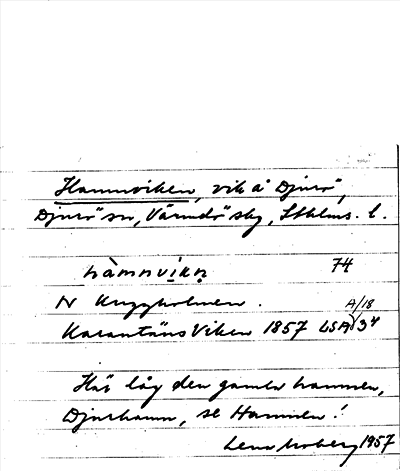 Hamnviken, vik å Djurö,
Djurö sn, Värmdö skg, Sthlms. l.
hàmnvikn 74
N Kuggholmen.
Karantäns Viken 1857 LSA A/18 34
Här låg den gamla hamnen,
Djurhamn, se Hamnen!
Lena Moberg 1957